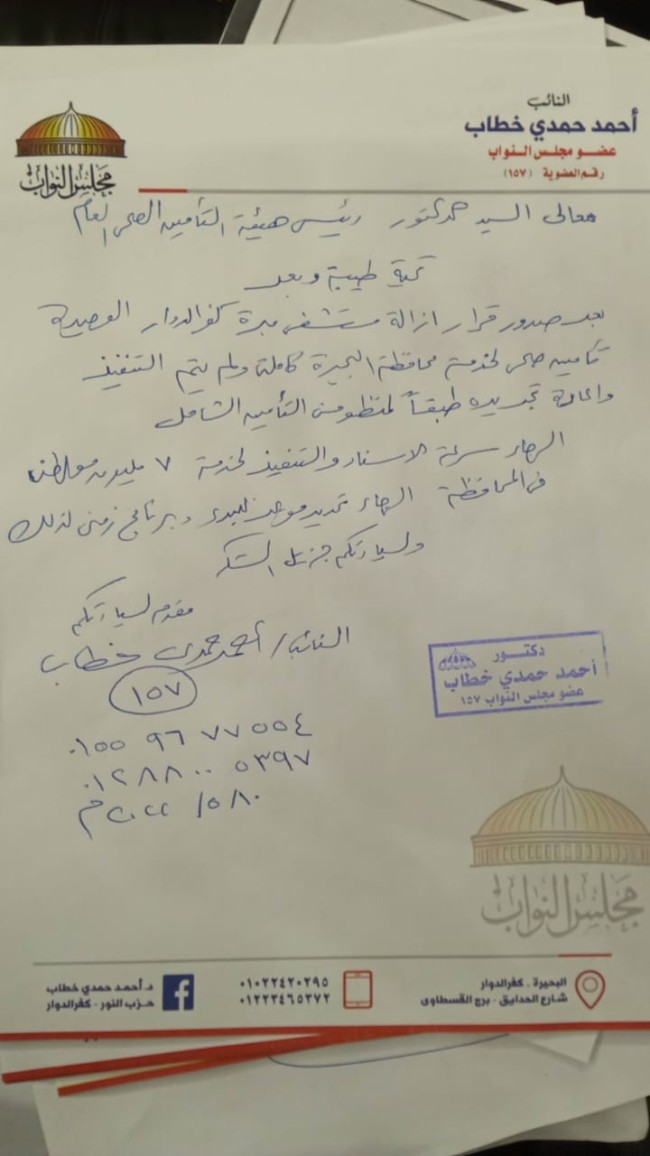 النائب
أحمد حمدي خطاب
عضو مجلس النواب
رقم العضوية (١٥٧)
مجلس النواب
معالى السيد الدكتور رئيس هيئة التأمين الصحى العام
تحية طيبة وبعد
بعد صدور قرار ازالة مستشفى مبرة كفر الدوار
تأمين صحى لخدمة محافظة البحيرة كاملة ولم يتم التنفيذ
واعادة تجديده طبقاً لمنظومة التأمين الشامل
الرجاء سرعة الاسناد والتنفيذ لخدمة ٧ مليون مواطن
فى المحافظة الرجاء تحديد موعد للبدء وبرنامج زمنى لذلك
ولسيادتكم جزيل الشكر
مقدم لسيادتكم
النائب/ أحمد حمدى خطاب
١٥٧
دكتور
أحمد حمدي خطاب
عضو مجلس النواب ١٥٧
٠١٠٠ ٩٦ ٧٧ ٥٥٤
٠١٢٨٨٠٠ ٥٣٩٧
مجلس النواب
البحيرة . كفرالدوار
شارع الحدايق - برج القسطاوى
٠١٠٢٢٤٢٠٢٩٥
٠١٢٢٣٤٦٥٣٧٢
د.أحمد حمدي خطاب
حزب النور - كفرالدوار